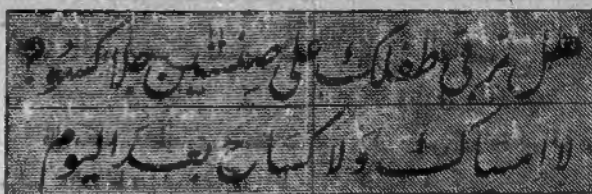 هل تربى طفلك على صِنشَين جلاكسُو؟
لا امسَاك وَلا كسَاح بعد اليوم